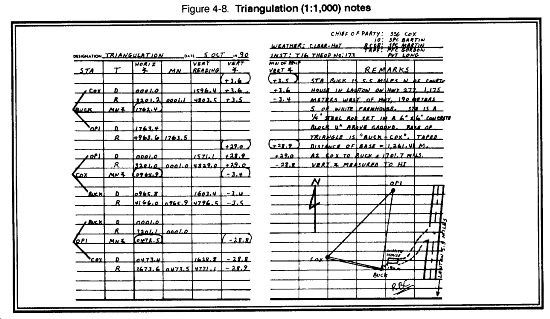 Figure 4-8. Triangulation (1:1,000) notes
CHIEF OF PARTY: SSG COX
IO: SPC MARTIN
WEATHER: CLEAR-HOT RCDR: SPC MARTIN
TAPE: PFC GORDON
DESIGNATION TRIANGULATION DATE 5 OCT 19 90 INST: T16 THEOD NO: 173 PVT LONG
STA T HORIZ ∢ MN VERT READING VERT ∢
MN OR RECIP VERT ∢ REMARKS
+3.6
COX D 0001.0 1596.4 +3.6
R 3201.2 0001.1 4803.5 +3.5
BUCK MN∢ 1762.4
OP1 D 1763.4
R 4963.6 1763.5
+29.0
OP1 D 0001.0 1571.1 +28.9
R 3201.0 0001.0 4829.0 +29.0
COX MN∢ 0965.9 -3.4
BUCK D 0965.8 1603.4 -3.4
R 4166.0 0965.9 4796.5 -3.5
BUCK D 0001.0
R 3201.1 0001.0
OP1 MN∢ 0472.5 -28.8
COX D 0473.4 1628.8 -28.8
R 3673.6 0473.5 4771.1 -28.9
+3.5 STA BUCK IS 5.5 MILES N OF COURT
+3.6 HOUSE IN LAWTON ON HWY 277, 1,175
-3.4 METERS WEST OF HWY, 190 METERS
S OF WHITE FARMHOUSE. STA IS A
¼" STEEL ROD SET IN A 6" X 6" CONCRETE
BLOCK 4" ABOVE GROUND. BASE OF
TRIANGLE IS "BUCK - COX". TAPED
+28.9 DISTANCE OF BASE = 1,261.41 M.
+29.0 AZ COX TO BUCK = 1701.7 MILS.
-28.8 VERT ∢ MEASURED TO HI
N
OP1
COX
BUCK
LAWTON 5.5 MILES